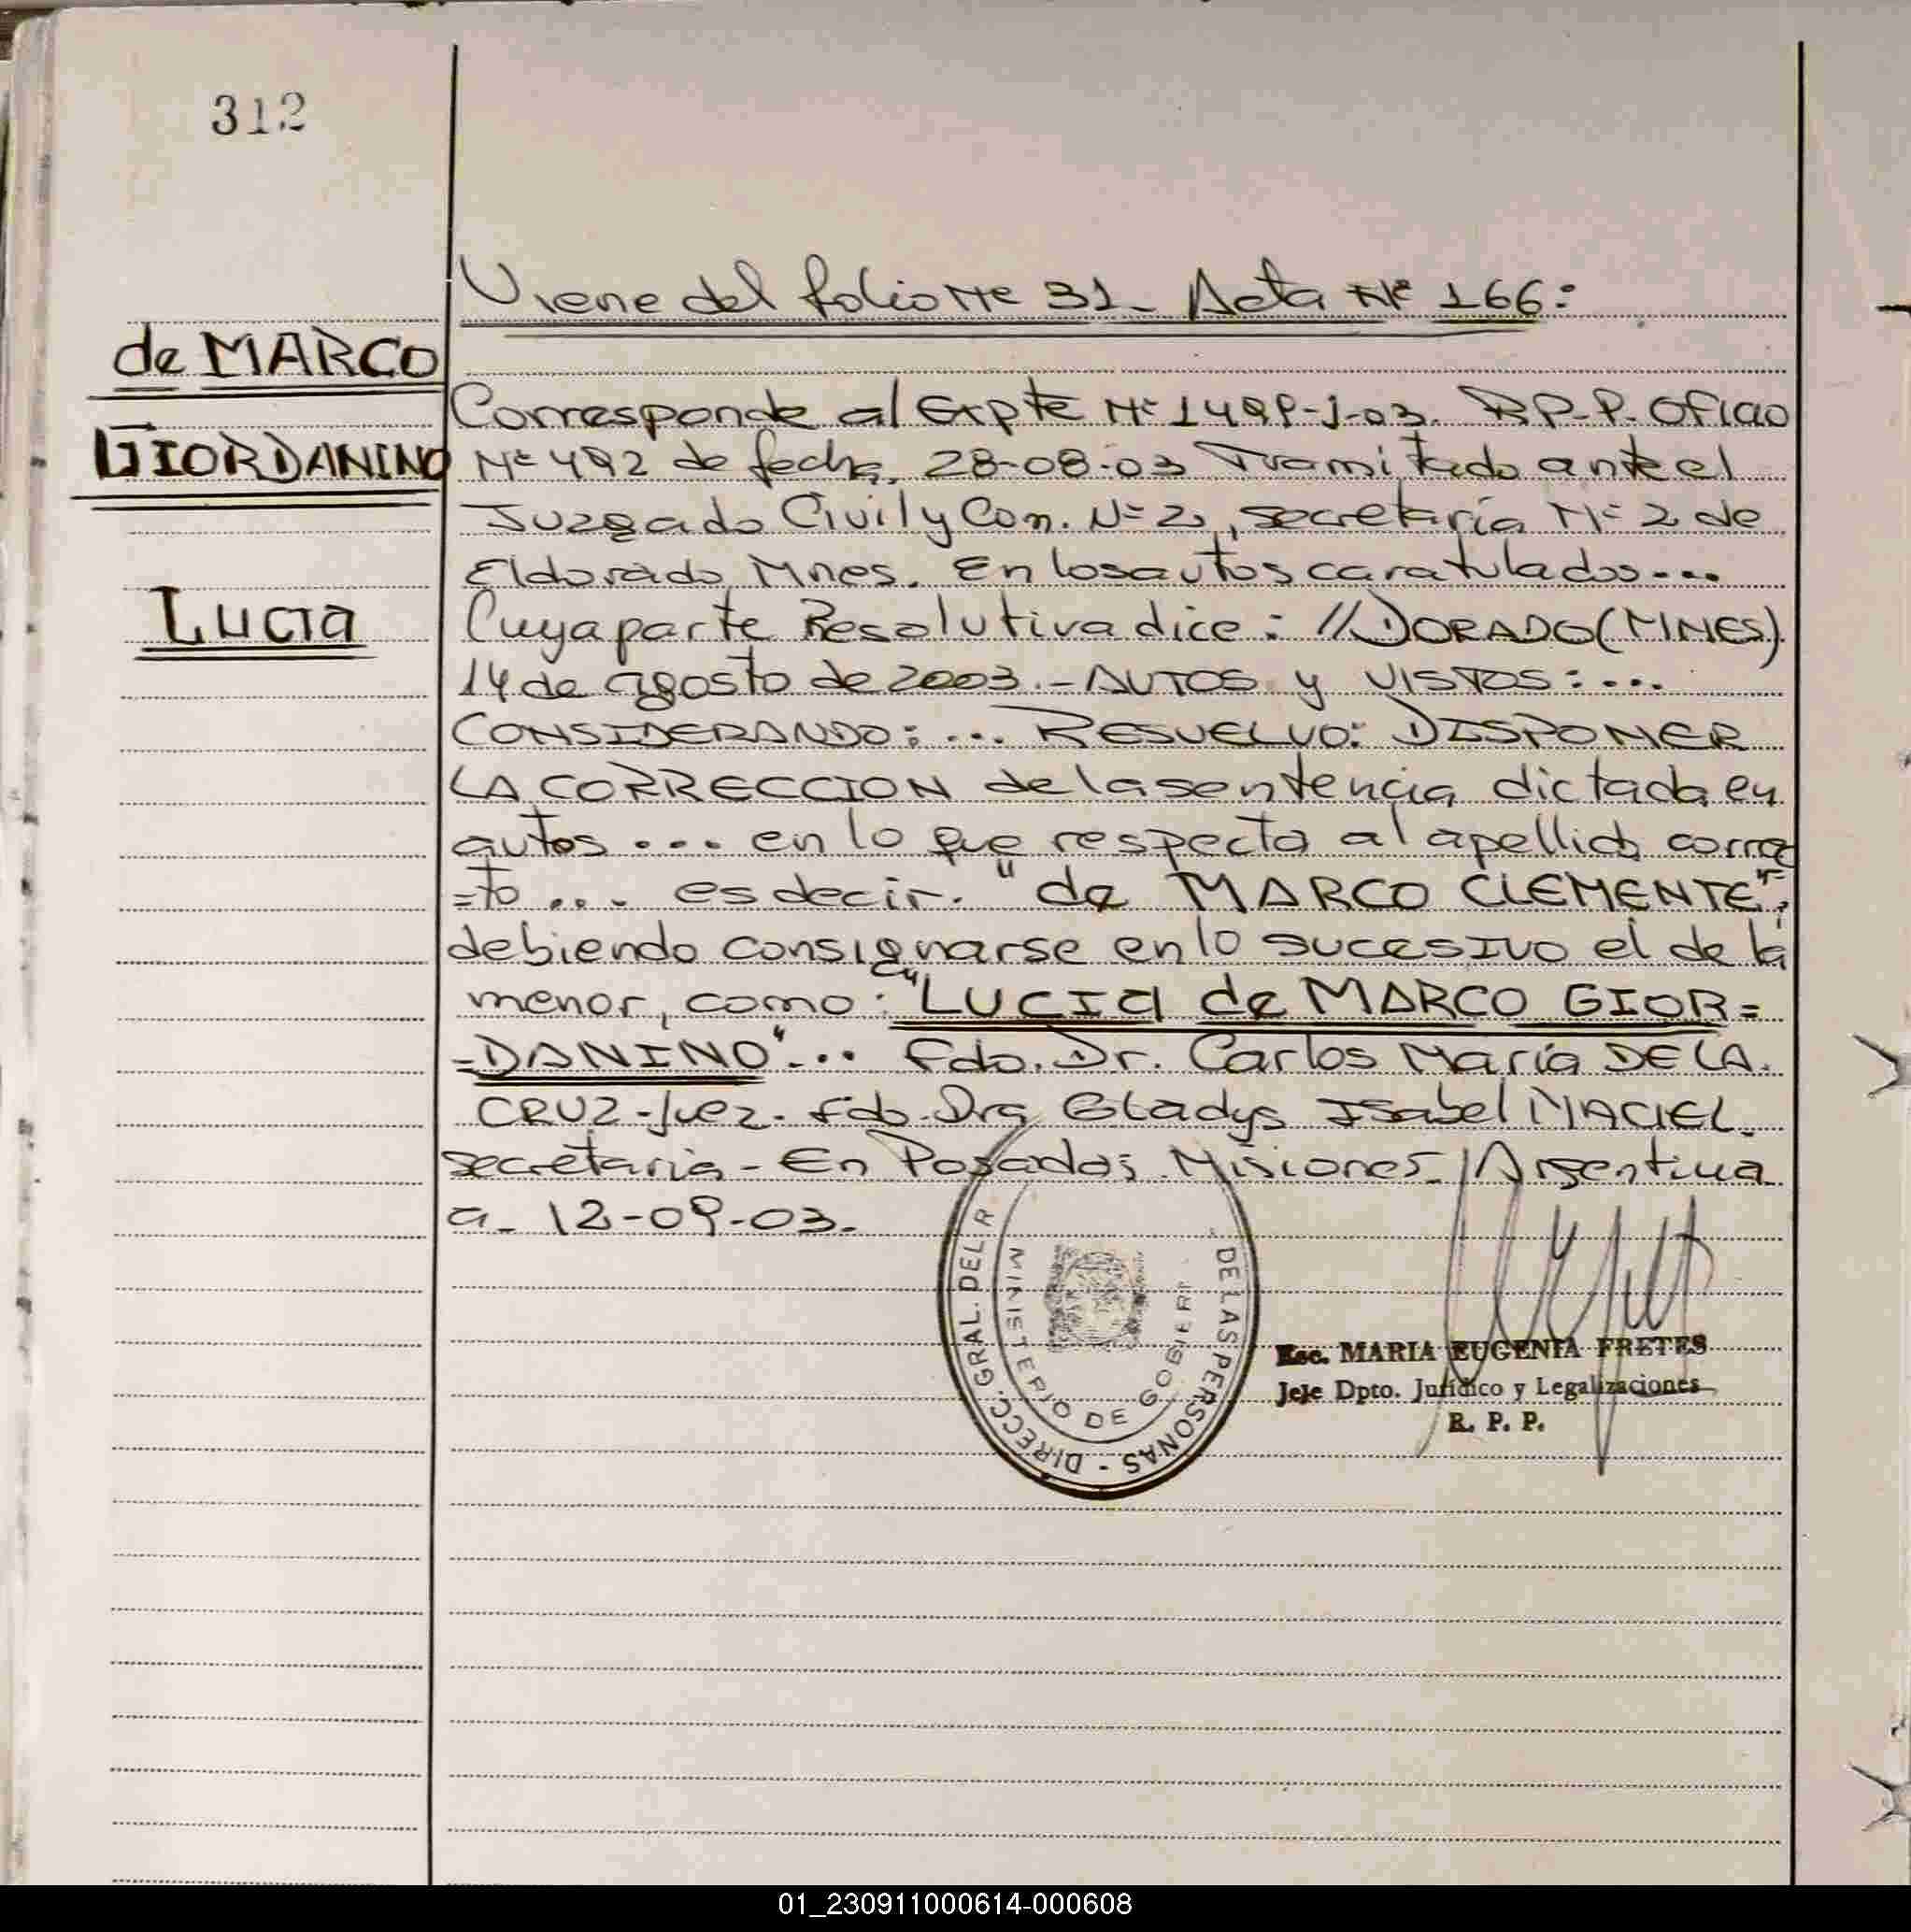 312
Viene del folio Nº 31 - Acta Nº 166:
de MARCO
GIORDANINO
Lucia
Corresponde al Expte Nº 1499-J-03. R.P.P. Oficio
Nº 492 de fecha, 28-08-03 Tramitado ante el
Juzgado Civil y Com. Nº 2, secretaría Nº 2 de
Eldorado Mnes. En los autos caratulados...
Cuya parte Resolutiva dice: //DORADO (MNES).
14 de agosto de 2003.- AUTOS y VISTOS:...
CONSIDERANDO:... RESUELVO: DISPONER
LA CORRECCION de la sentencia dictada en
autos .... en lo que respecta al apellido correc
=to .... es decir. "de MARCO CLEMENTE",
debiendo consignarse en lo sucesivo el de la
menor, como: "LUCIA de MARCO GIOR=
=DANINO"... Fdo. Dr. Carlos María DE LA
CRUZ-Juez- Fdo. Dra Gladys Isabel MACIEL.
secretaria - En Posadas Misiones - Argentina
a- 12-09-03-
DIRECC. GRAL. DEL R
DE LAS PERSONAS -
MINISTERIO DE GOBIER
Esc. MARIA EUGENIA FRETES
Jefe Dpto. Jurídico y Legalizaciones
R. P. P.
01_230911000614-000608